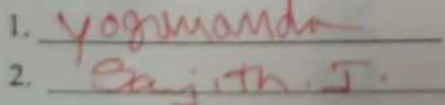 1. Yogananda
2. Sanjith. J.